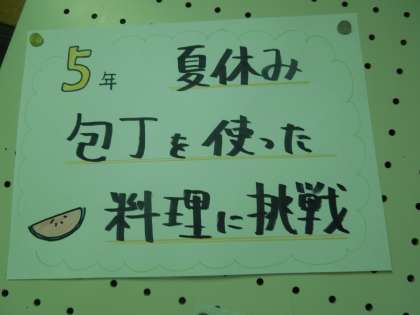 5年 夏休み
包丁を使った
料理に挑戦